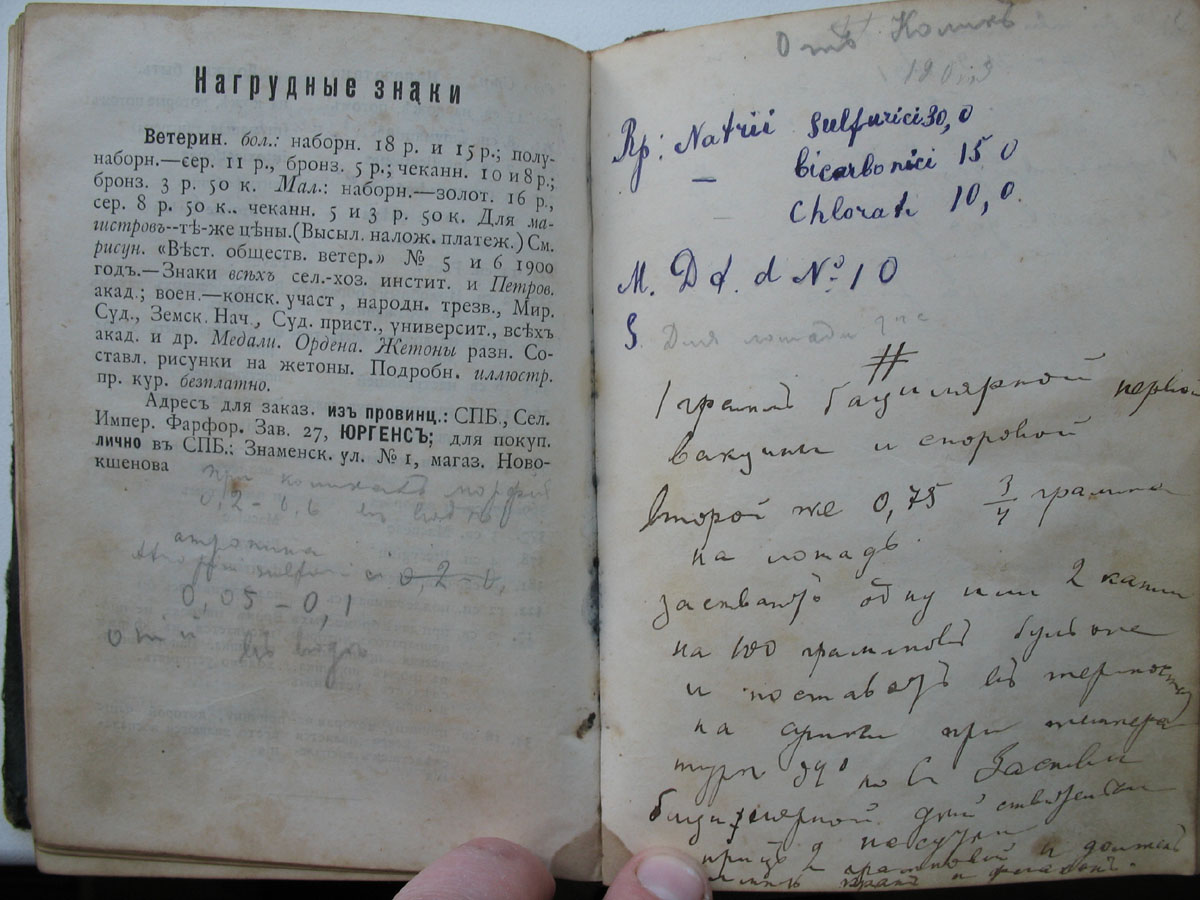 Нагрудные знаки
Ветерин. бол.: наборн. 18 р. и 15 р.; полу-
наборн.—сер. 11 р., бронз. 5 р.; чеканн. 10 и 8 р.;
бронз. 3 р. 50 к. Мал.: наборн.—золот. 16 р.,
сер. 8 р. 50 к.. чеканн. 5 и 3 р. 50 к. Для ма-
гистровъ--тѣ-же цѣны.(Высыл. налож. платеж.) См.
рисун. «Вѣст. обществ. ветер.» № 5 и 6 1900
годъ.—Знаки всѣхъ сел.-хоз. инстит. и Петров.
акад.; воен.—конск. участ, народн. трезв., Мир.
Суд., Земск. Нач., Суд. прист., университ., всѣхъ
акад. и др. Медали. Ордена. Жетоны разн. Со-
ставл. рисунки на жетоны. Подробн. иллюстр.
пр. кур. безплатно.
Адресъ для заказ. изъ провинц.: СПБ., Сел.
Импер. Фарфор. Зав. 27, ЮРГЕНСЪ; для покуп.
лично въ СПБ.: Знаменск. ул. № 1, магаз. Ново-
кшенова
при коликахъ морфій
0,2 – 0,6 въ водѣ
атропина
0,05 – 0,1
въ водѣ
Отъ Коликъ
Rp: Natrii sulfurici 30,0
— bicarbonici 15 0
— Chlorati 10,0
M. D d. d № 10
S. Для лошади
#
1 граммъ бацилярной первой
вакцины и споровой
второй же 0,75 3/4 грамма
на лошадь.
засѣваютъ одну или 2 капли
на 100 граммовъ бульона
и поставятъ въ термостатъ
на сутки при темпера
туры по C